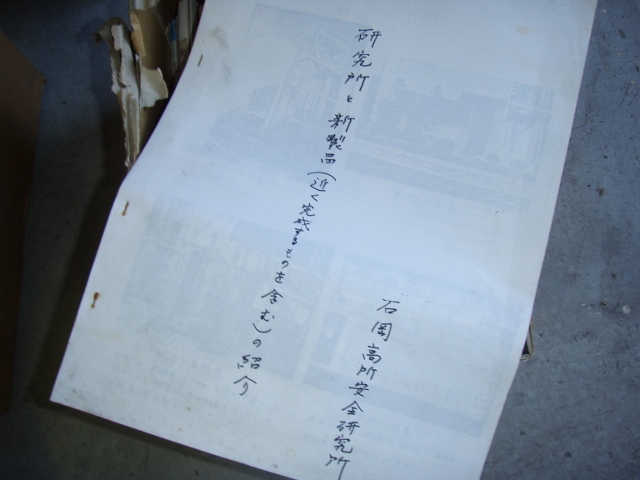 研究所と新製品(近く完成するものを含む)の紹介
石岡高所安全研究所